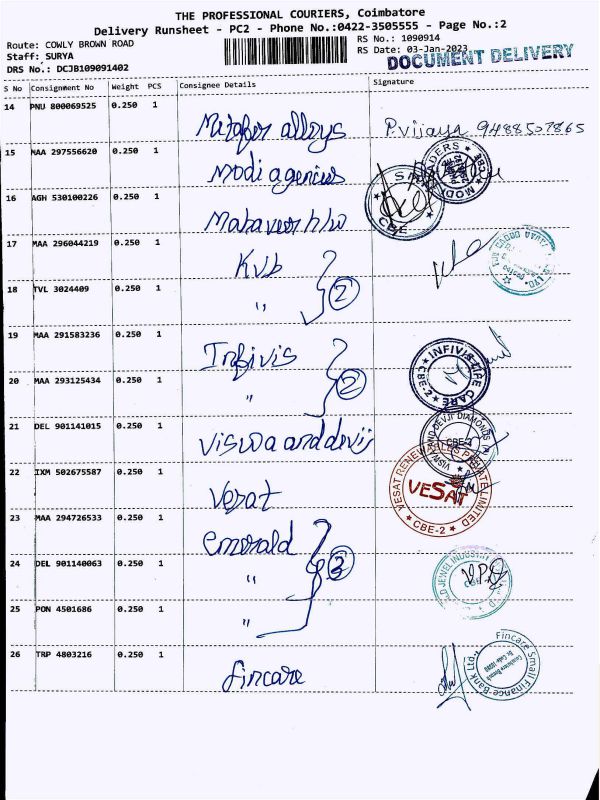 THE PROFESSIONAL COURIERS, Coimbatore
Delivery Runsheet - PC2 - Phone No.:0422-3505555 - Page No.:2
Route: COWLY BROWN ROAD
Staff: SURYA
DRS No.: DCJB109091402
RS No.: 1090914
RS Date: 03-Jan-2023
DOCUMENT DELIVERY
S No Consignment No Weight PCS Consignee Details Signature
14 PNU 800069525 0.250 1 Metafor alloys Pvijaya 9488507865
15 MAA 297556620 0.250 1 Modi agencies
MODI TRADERS CBE
16 AGH 530100226 0.250 1 Mahaveer h/w
CBE
17 MAA 296044219 0.250 1 Kvb
18 TVL 3024409 0.250 1 " 2
19 MAA 291583236 0.250 1 Infivis
INFIVIS LIFE CARE CBE-2
20 MAA 293125434 0.250 1 " 2
21 DEL 901141015 0.250 1 Viswa and devji
VISWA AND DEVJI DIAMONDS CBE-2
22 IXM 502675587 0.250 1 Vesat
VESAT RENEWABLES PRIVATE LIMITED
VESAT
CBE-2
23 MAA 294726533 0.250 1 Emerald
24 DEL 901140063 0.250 1 " 3
JEWEL INDUSTRY
25 PON 4501686 0.250 1 "
26 TRP 4803216 0.250 1 fincare
Fincare Small Finance Bank Ltd.